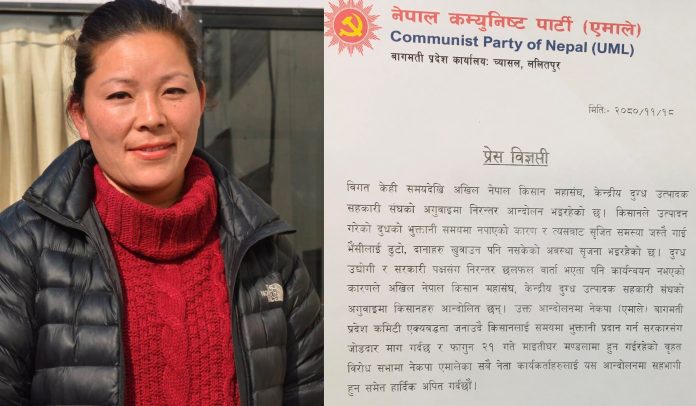 नेपाल कम्युनिष्ट पार्टी (एमाले)
Communist Party of Nepal (UML)
बागमती प्रदेश कार्यालयः च्यासल, ललितपुर
मितिः- २०८०/११/१८
प्रेस विज्ञप्ती
विगत केही समयदेखि अखिल नेपाल किसान महासंघ, केन्द्रीय दुग्ध उत्पादक
सहकारी संघको अगुवाइमा निरन्तर आन्दोलन भइरहेको छ। किसानले उत्पादन
गरेको दुधको भुक्तानी समयमा नपाएको कारण र त्यसबाट सृजित समस्या जस्तै गाई
भैंसीलाई ढुटो, दानाहरु खुवाउन पनि नसकेको अवस्था सृजना भइरहेको छ। दुग्ध
उद्योगी र सरकारी पक्षसंग निरन्तर छलफल वार्ता भएता पनि कार्यन्वयन नभएको
कारणले अखिल नेपाल किसान महासंघ, केन्द्रीय दुग्ध उत्पादक सहकारी संघको
अगुवाइमा किसानहरु आन्दोलित छन्। उक्त आन्दोलनमा नेकपा (एमाले) बागमती
प्रदेश कमिटी एक्यवद्धता जनाउदै किसानलाई समयमा भुक्तानी प्रदान गर्न सरकारसंग
जोडदार माग गर्वछ र फागुन २१ गते माइतीघर मण्डलामा हुन गईरहेको वृहत
विरोध सभामा नेकपा एमालेका सवै नेता कार्यकर्ताहरुलाई यस आन्दोलनमा सहभागी
हुन समेत हार्दिक अपिल गर्वछौं।
THE NORTH FACE